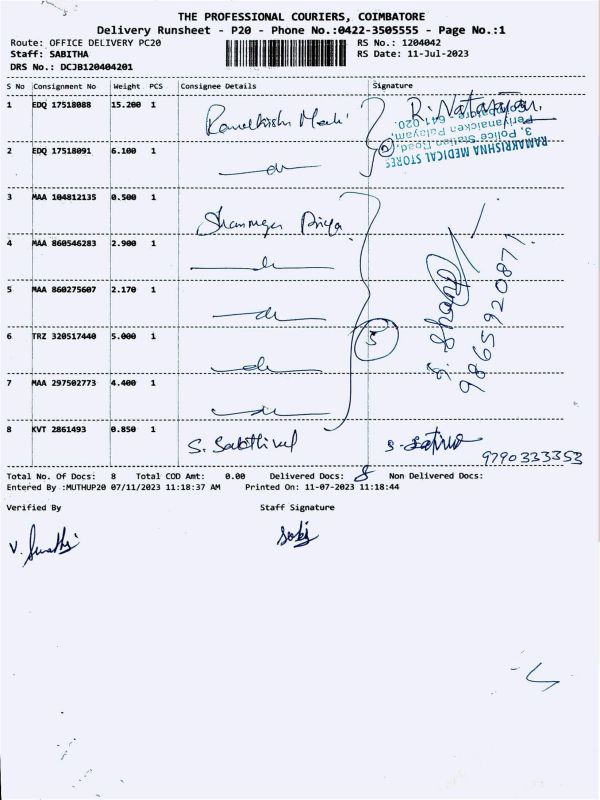 THE PROFESSIONAL COURIERS, COIMBATORE
Delivery Runsheet - P20 - Phone No.:0422-3505555 - Page No.:1
Route: OFFICE DELIVERY PC20 RS No.: 1204042
Staff: SABITHA RS Date: 11-Jul-2023
DRS No.: DCJB120404201
S No Consignment No Weight PCS Consignee Details Signature
1 EDQ 17518088 15.200 1 R. Natarajan.
RAMAKRISHNA MEDICAL STORES
3, Police Station Road,
Periyanaicken Palayam,
Coimbatore - 641 020.
2 EDQ 17518091 6.100 1 2
3 MAA 104812135 0.500 1 Shanmuga Priya
4 MAA 860546283 2.900 1
5 MAA 860275607 2.170 1
6 TRZ 320517440 5.000 1 5
7 MAA 297502773 4.400 1
9865920877
8 KVT 2861493 0.850 1 S. Sakthivel
9790333353
Total No. Of Docs: 8 Total COD Amt: 0.00 Delivered Docs: 8 Non Delivered Docs:
Entered By :MUTHUP20 07/11/2023 11:18:37 AM Printed On: 11-07-2023 11:18:44
Verified By Staff Signature